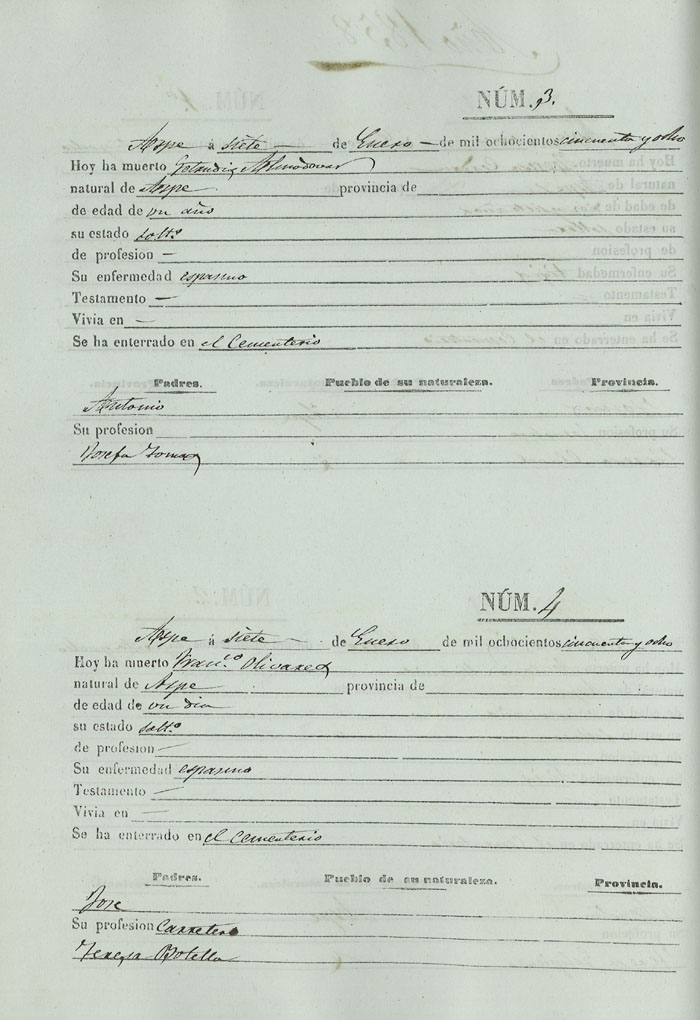 NÚM. 3.
Aspe á siete — de Enero — de mil ochocientos cincuenta y ocho
Hoy ha muerto Almodovar
natural de Aspe provincia de
de edad de un año
su estado solt.º
de profesion —
Su enfermedad espasmo
Testamento —
Vivia en —
Se ha enterrado en el Cementerio
Padres. Pueblo de su naturaleza. Provincia.
Antonio
Su profesion
Josefa
NÚM. 4
Aspe á siete — de Enero de mil ochocientos cincuenta y ocho
Hoy ha muerto Fran.co Olivares
natural de Aspe provincia de
de edad de un dia
su estado solt.º
de profesion —
Su enfermedad espasmo
Testamento —
Vivia en —
Se ha enterrado en el Cementerio
Padres. Pueblo de su naturaleza. Provincia.
Jose
Su profesion Carretero
Teresa Botella